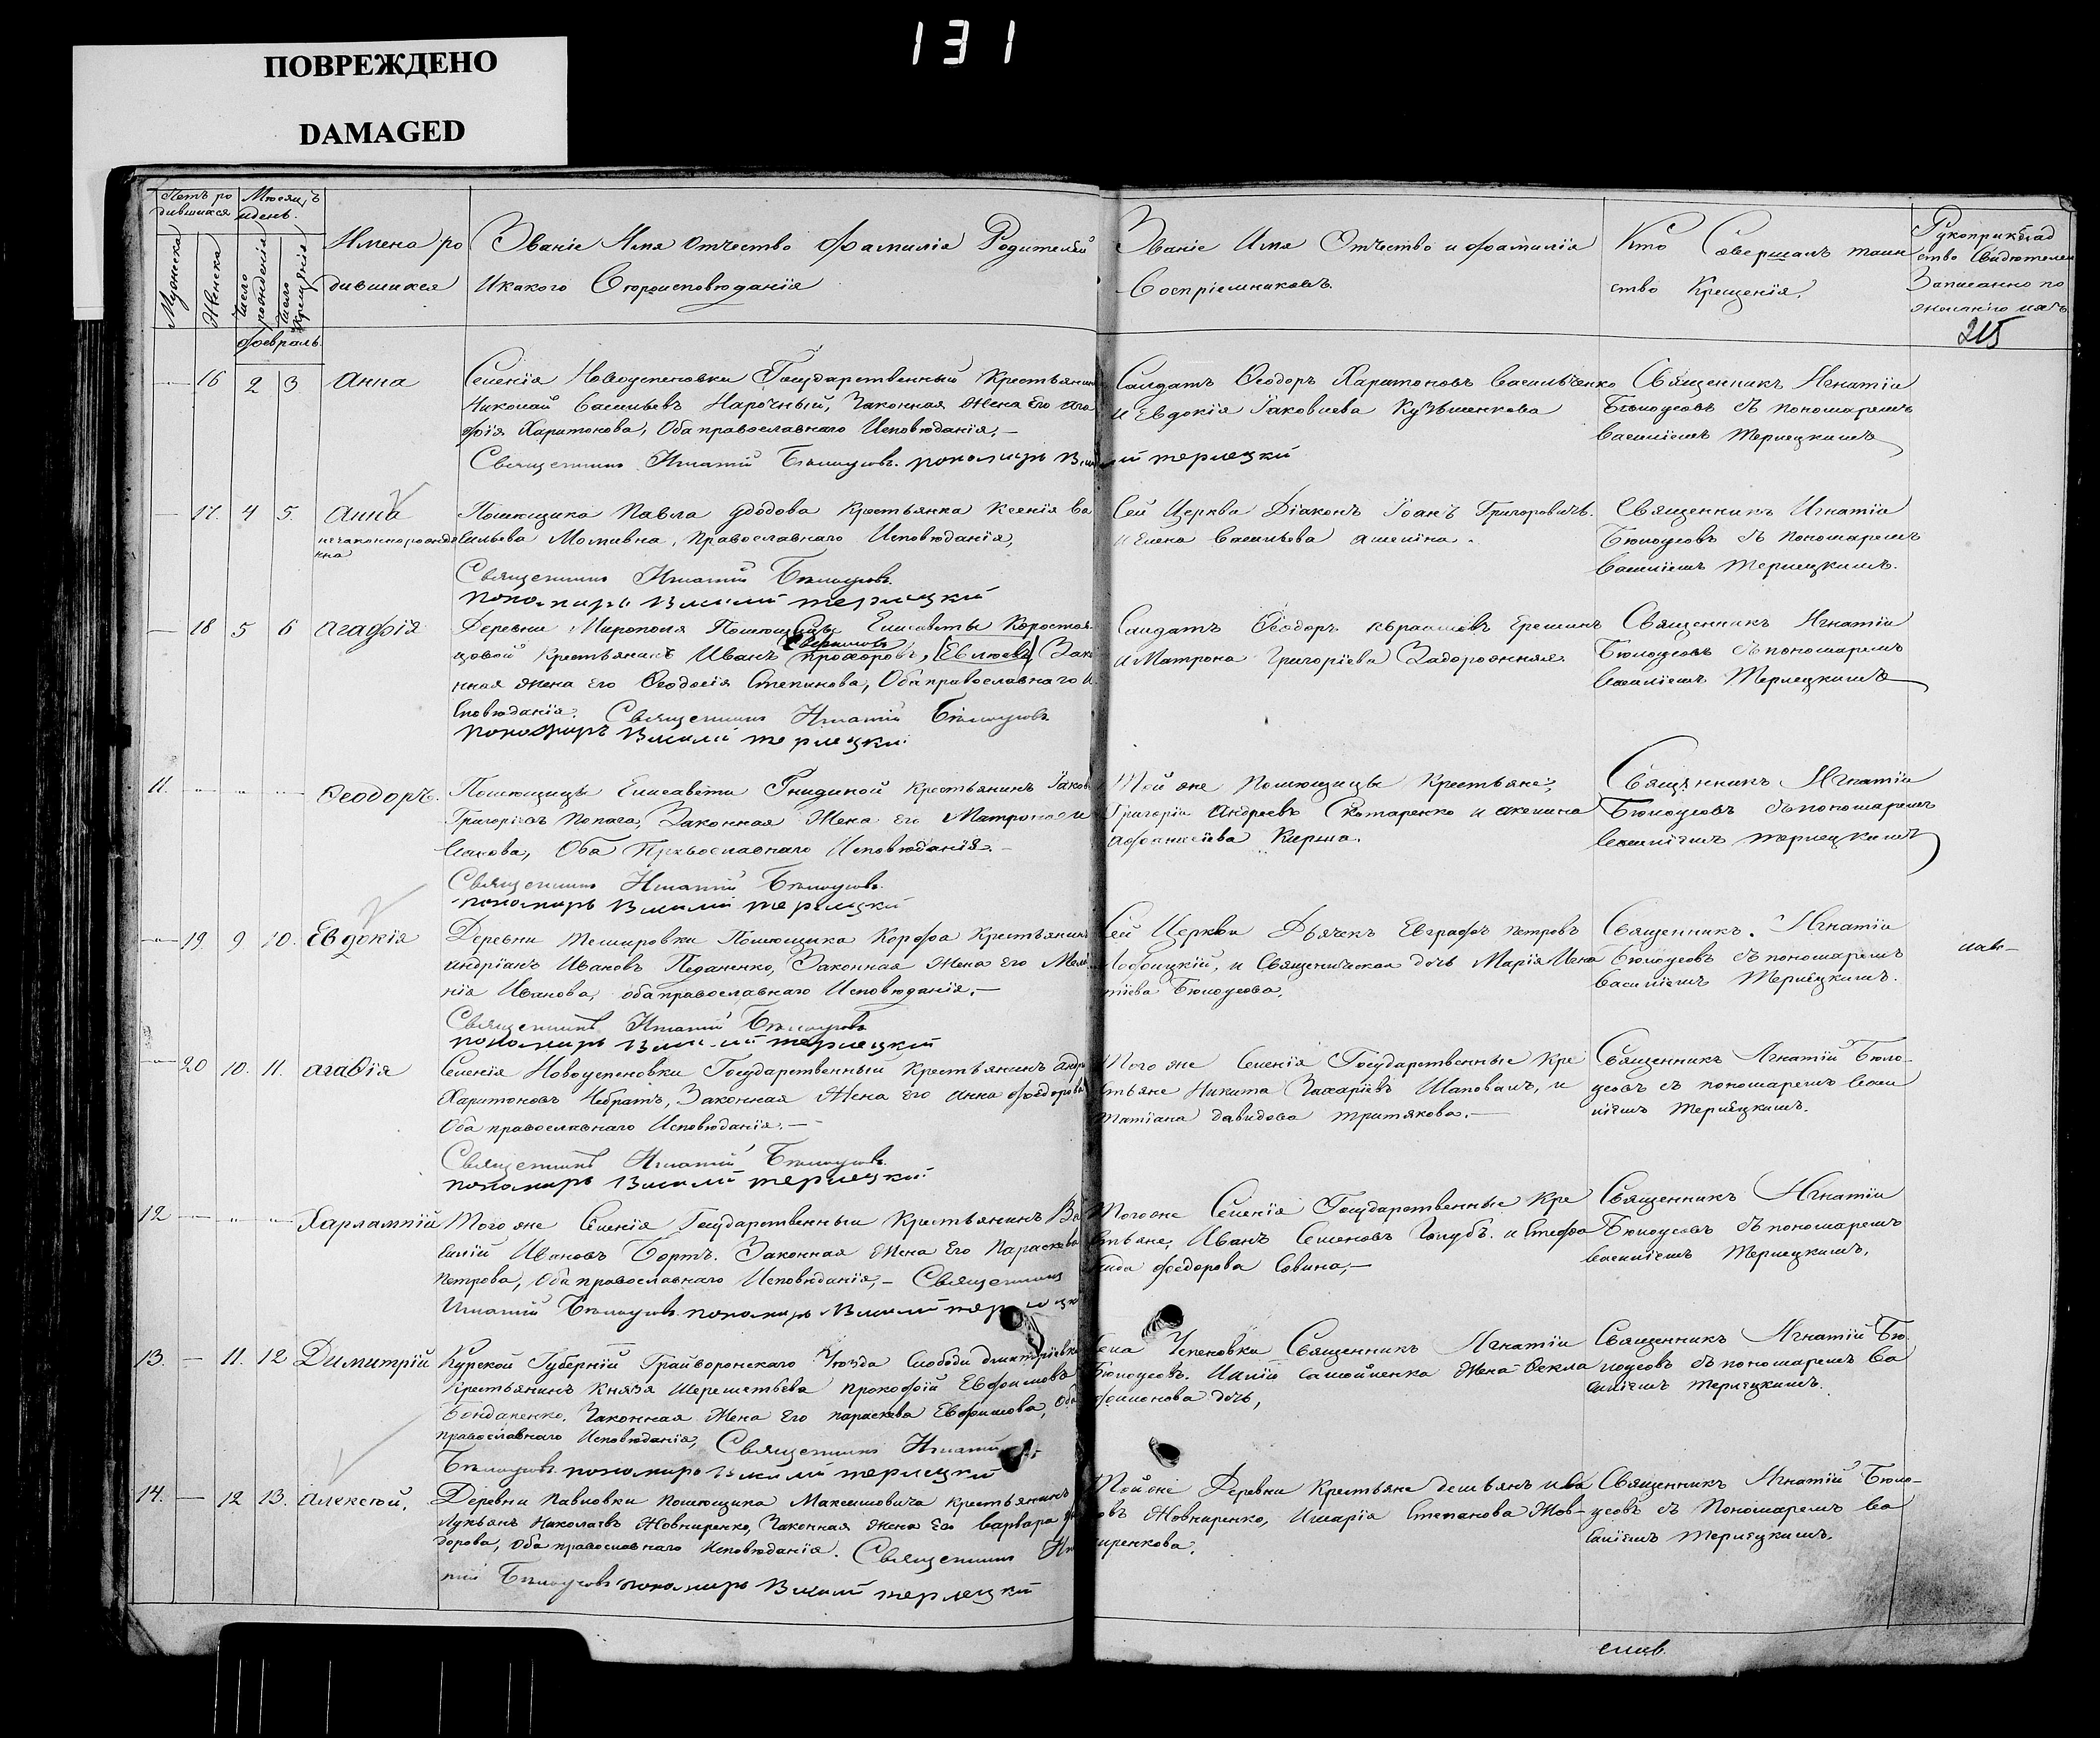 131
ПОВРЕЖДЕНО
DAMAGED
Счетъ ро
дившихся
Мѣсяцъ
и день.
Мужска
Женска
Число рожденія
Число Крещенія
Имена ро
дившихся
Званіе Имя Отчество Фамилія Родителей
И какого Вѣроисповѣданія
Званіе Имя Отчество и Фамилія
Воспріемниковъ.
Кто Совершалъ таин
ство Крещенія.
Рукоприклад
ство Свидѣтелей
Записанно по
желанію
215
Февраль
16 2 3 Анна
Селенія Новоуспеновки Государственный Крестьянинъ
Николай Васильевъ Нарочный, Законная Жена Его Ага
фія Харитонова, Оба православнаго Исповѣданія,
Священникъ Игнатій Бѣлоусовъ. пономарь Василий терлецкий
Солдатъ Ѳеодоръ Харитоновъ Васильченко
и Евдокія Іаковлева Кузьменкова
Священникъ Игнатій
Бѣлоусовъ съ пономаремъ
Василіемъ Терлецкимъ
17. 4 5. Анна
незаконнорожде
нна
Помѣщика Павла Удодова Крестьянка Ксенія Ва
сильева , Православнаго Исповѣданія,
Священникъ Игнатій Бѣлоусовъ.
пономарь Василий терлецкий
Сей Церкви Діаконъ Іоанъ Григоровичъ.
и Елена Васильева
Священникъ Игнатій
Бѣлоусовъ съ пономаремъ
Василіемъ Терлецкимъ.
18 5 6 Агафія
Деревни Мирополя Помѣщицы Елисаветы Коростов
цовой Крестьянинъ Иванъ Прохоровъ, Зако
нная жена его Ѳеодосія Степанова, Оба православнаго И
сповѣданія. Священникъ Игнатій Бѣлоусовъ
пономарь Василий терлецкий
Солдатъ Ѳеодоръ Ерешинъ
и Матрона Григоріева Задорожняя.
Священникъ Игнатій
Бѣлоусовъ съ пономаремъ
Василіемъ Терлецкимъ
11. Ѳеодоръ.
Помѣщицы Елисаветы Гнидиной Крестьянинъ Іаковъ
Григоріевъ Попага, Законная Жена его Матрона
, Оба Православнаго Исповѣданія.
Священникъ Игнатій Бѣлоусовъ.
пономарь Василий терлецкий
Той же Помѣщицы Крестьяне,
Григорій Андреевъ и
Афанасіева Кирпа.
Священникъ Игнатій
Бѣлоусовъ съ пономаремъ
Василіемъ терлецкимъ
19 9 10. Евдокія
Деревни Темировки Помѣщика Корфа Крестьянинъ
Андріанъ Ивановъ Педаненко, Законная Жена его Мела
нія Иванова, оба православнаго Исповѣданія.
Священникъ Игнатій Бѣлоусовъ
пономарь Василий терлецкий
Сей Церкви Дьячекъ Евграфъ Петровъ
и Священическая дочь Марія Игна
тіева Бѣлоусова.
Священникъ. Игнатій
Бѣлоусовъ съ пономаремъ
Василіемъ Терлецкимъ.
20 10. 11. Агафія
Селенія Новоуспеновки Государственный Крестьянинъ
Харитоновъ Небратъ, Законная Жена его Анна Ѳеодорова
Оба православнаго Исповѣданія.
Священникъ Игнатій Бѣлоусовъ.
пономарь Василий терлецкий
Того же Селенія Государственные Кре
стьяне Никита Захаріевъ Шаповалъ, и
Татіана Давидова третякова.
Священникъ Игнатій Бѣло
усовъ съ пономаремъ Васи
ліемъ Терлецкимъ.
12 Харлампій
Того же Селенія Государственный Крестьянинъ Ва
силій Ивановъ Бортъ. Законная Жена Его Параскева
Петрова, Оба православнаго Исповѣданія, Священникъ
Игнатій Бѣлоусовъ пономарь Василий терлецкий
Того же Селенія Государственные Кре
стьяне, Иванъ Семеновъ Голубъ. и Стефа
нида Ѳеодорова Совина,
Священникъ Игнатій
Бѣлоусовъ съ пономаремъ
Василіемъ Терлецкимъ.
13. 11. 12 Димитрій
Курской Губерній Грайворонскаго Уѣзда Слободи Дмитріевки
Крестьянинъ Князя Шереметьева Прокофій Евфимовъ
Бондаренко, Законная Жена Его параскева Евфимова, Оба
православнаго Исповѣданія, Священникъ Игнатій
Бѣлоусовъ пономарь Василий терлецкий
Села Успеновки Священникъ Игнатій
Бѣлоусовъ. Жена Ѳекла
дочь,
Священникъ Игнатій Бѣ
лоусовъ съ пономаремъ Ва
силіемъ терлецкимъ.
14. 12 13. Алексѣй.
Деревни Павловки Помѣщика Максимовича Крестьянинъ
Лукьянъ Николаевъ Жовниренко, Законная жена Его Варвара Ѳео
дорова, Оба православнаго Исповѣданія. Священникъ Игна
тій Бѣлоусовъ пономарь Василий терлецкий
Той же Деревни Крестьяне Демьянъ Ива
овъ Жовниренко, и Марія Степанова Жов
ниренкова.
Священникъ Игнатій Бѣло
усовъ съ Пономаремъ Ва
силіемъ Терлецкимъ.